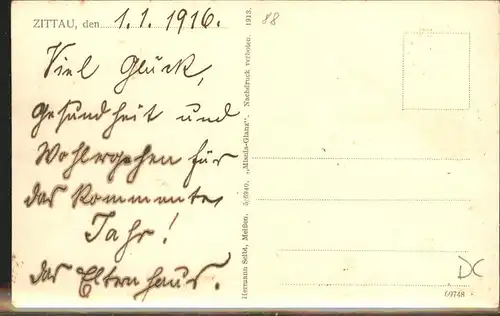 ZITTAU, den 1.1.1916.
Viel Glück,
Gesundheit und
Wohlergehen für
das kommende
Jahr!
das Elternhaus.
Hermann Seibt, Meißen. 5:6940. „Misula-Glanz“. Nachdruck verboten. 1913.
88
DC
69748